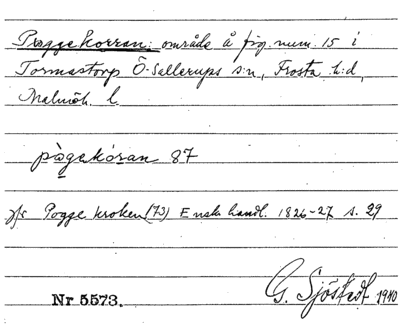 Poggekorran: område å fig. num. 15 i
Tormastorp Ö. Sallerups s:n, Frosta h:d,
Malmöh. l.
pågekóran 87
jfr Pogge kroken (73) Ensk. handl. 1826-27 s. 29
G. Sjöstedt 1940
Nr 5573.